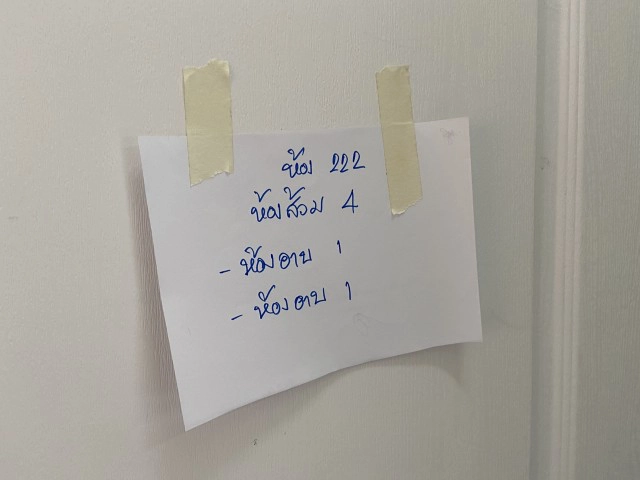 ห้อง 222
ห้องส้วม 4
- ห้องอาบ 1
- ห้องอาบ 1